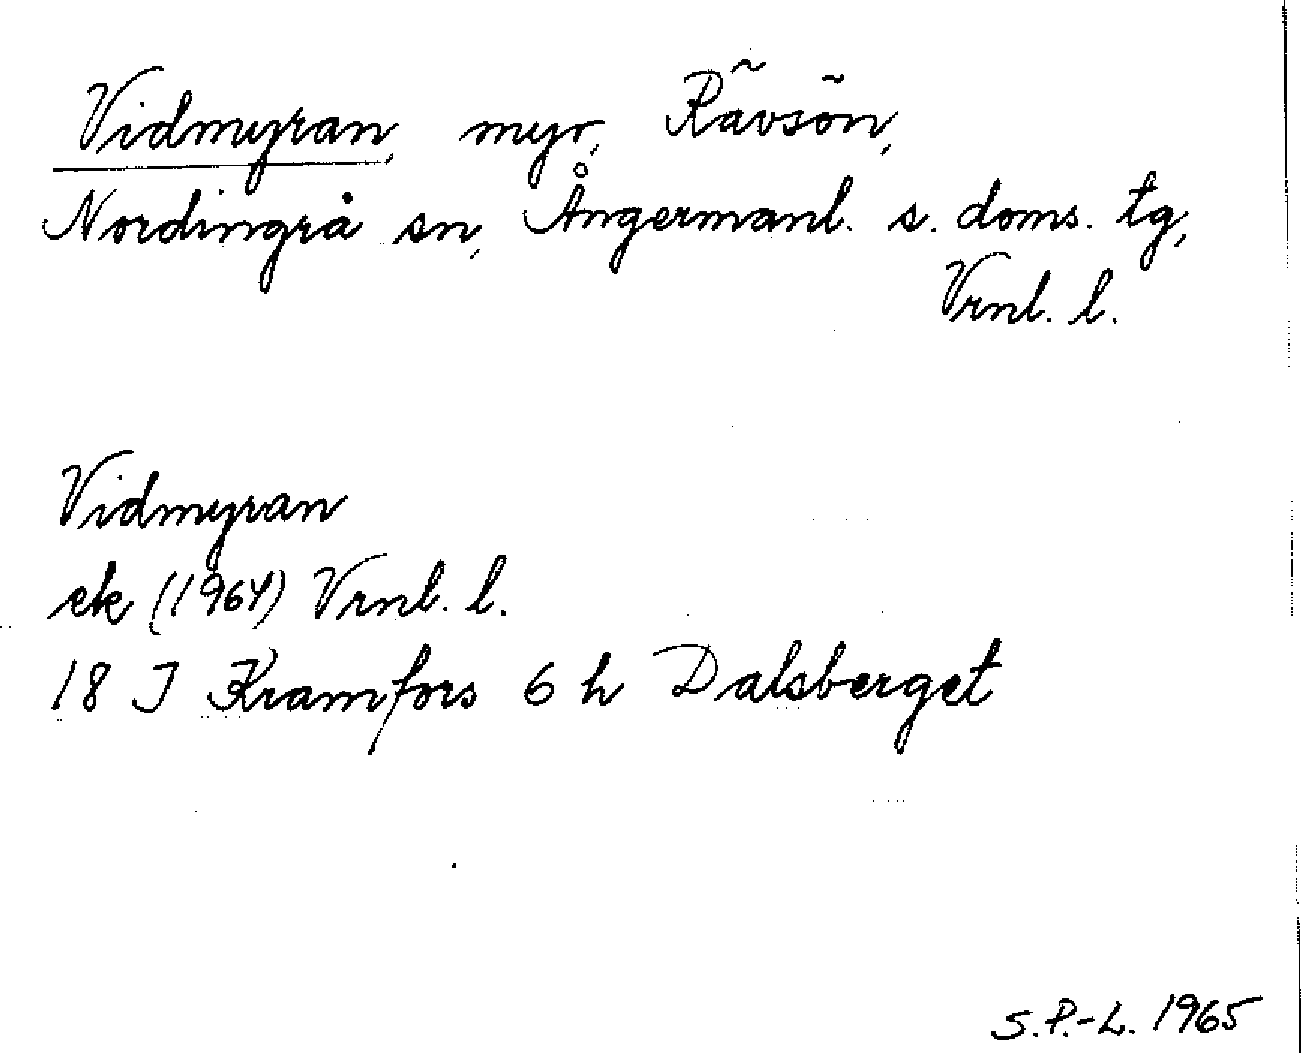 Vidmyran, myr, Rävsön,
Nordingrå sn, Ångermanl. s. doms. tg,
Vrnl. l.
Vidmyran
ek (1964) Vrnl. l.
18 I Kramfors 6 h Dalsberget
S.P.-L. 1965